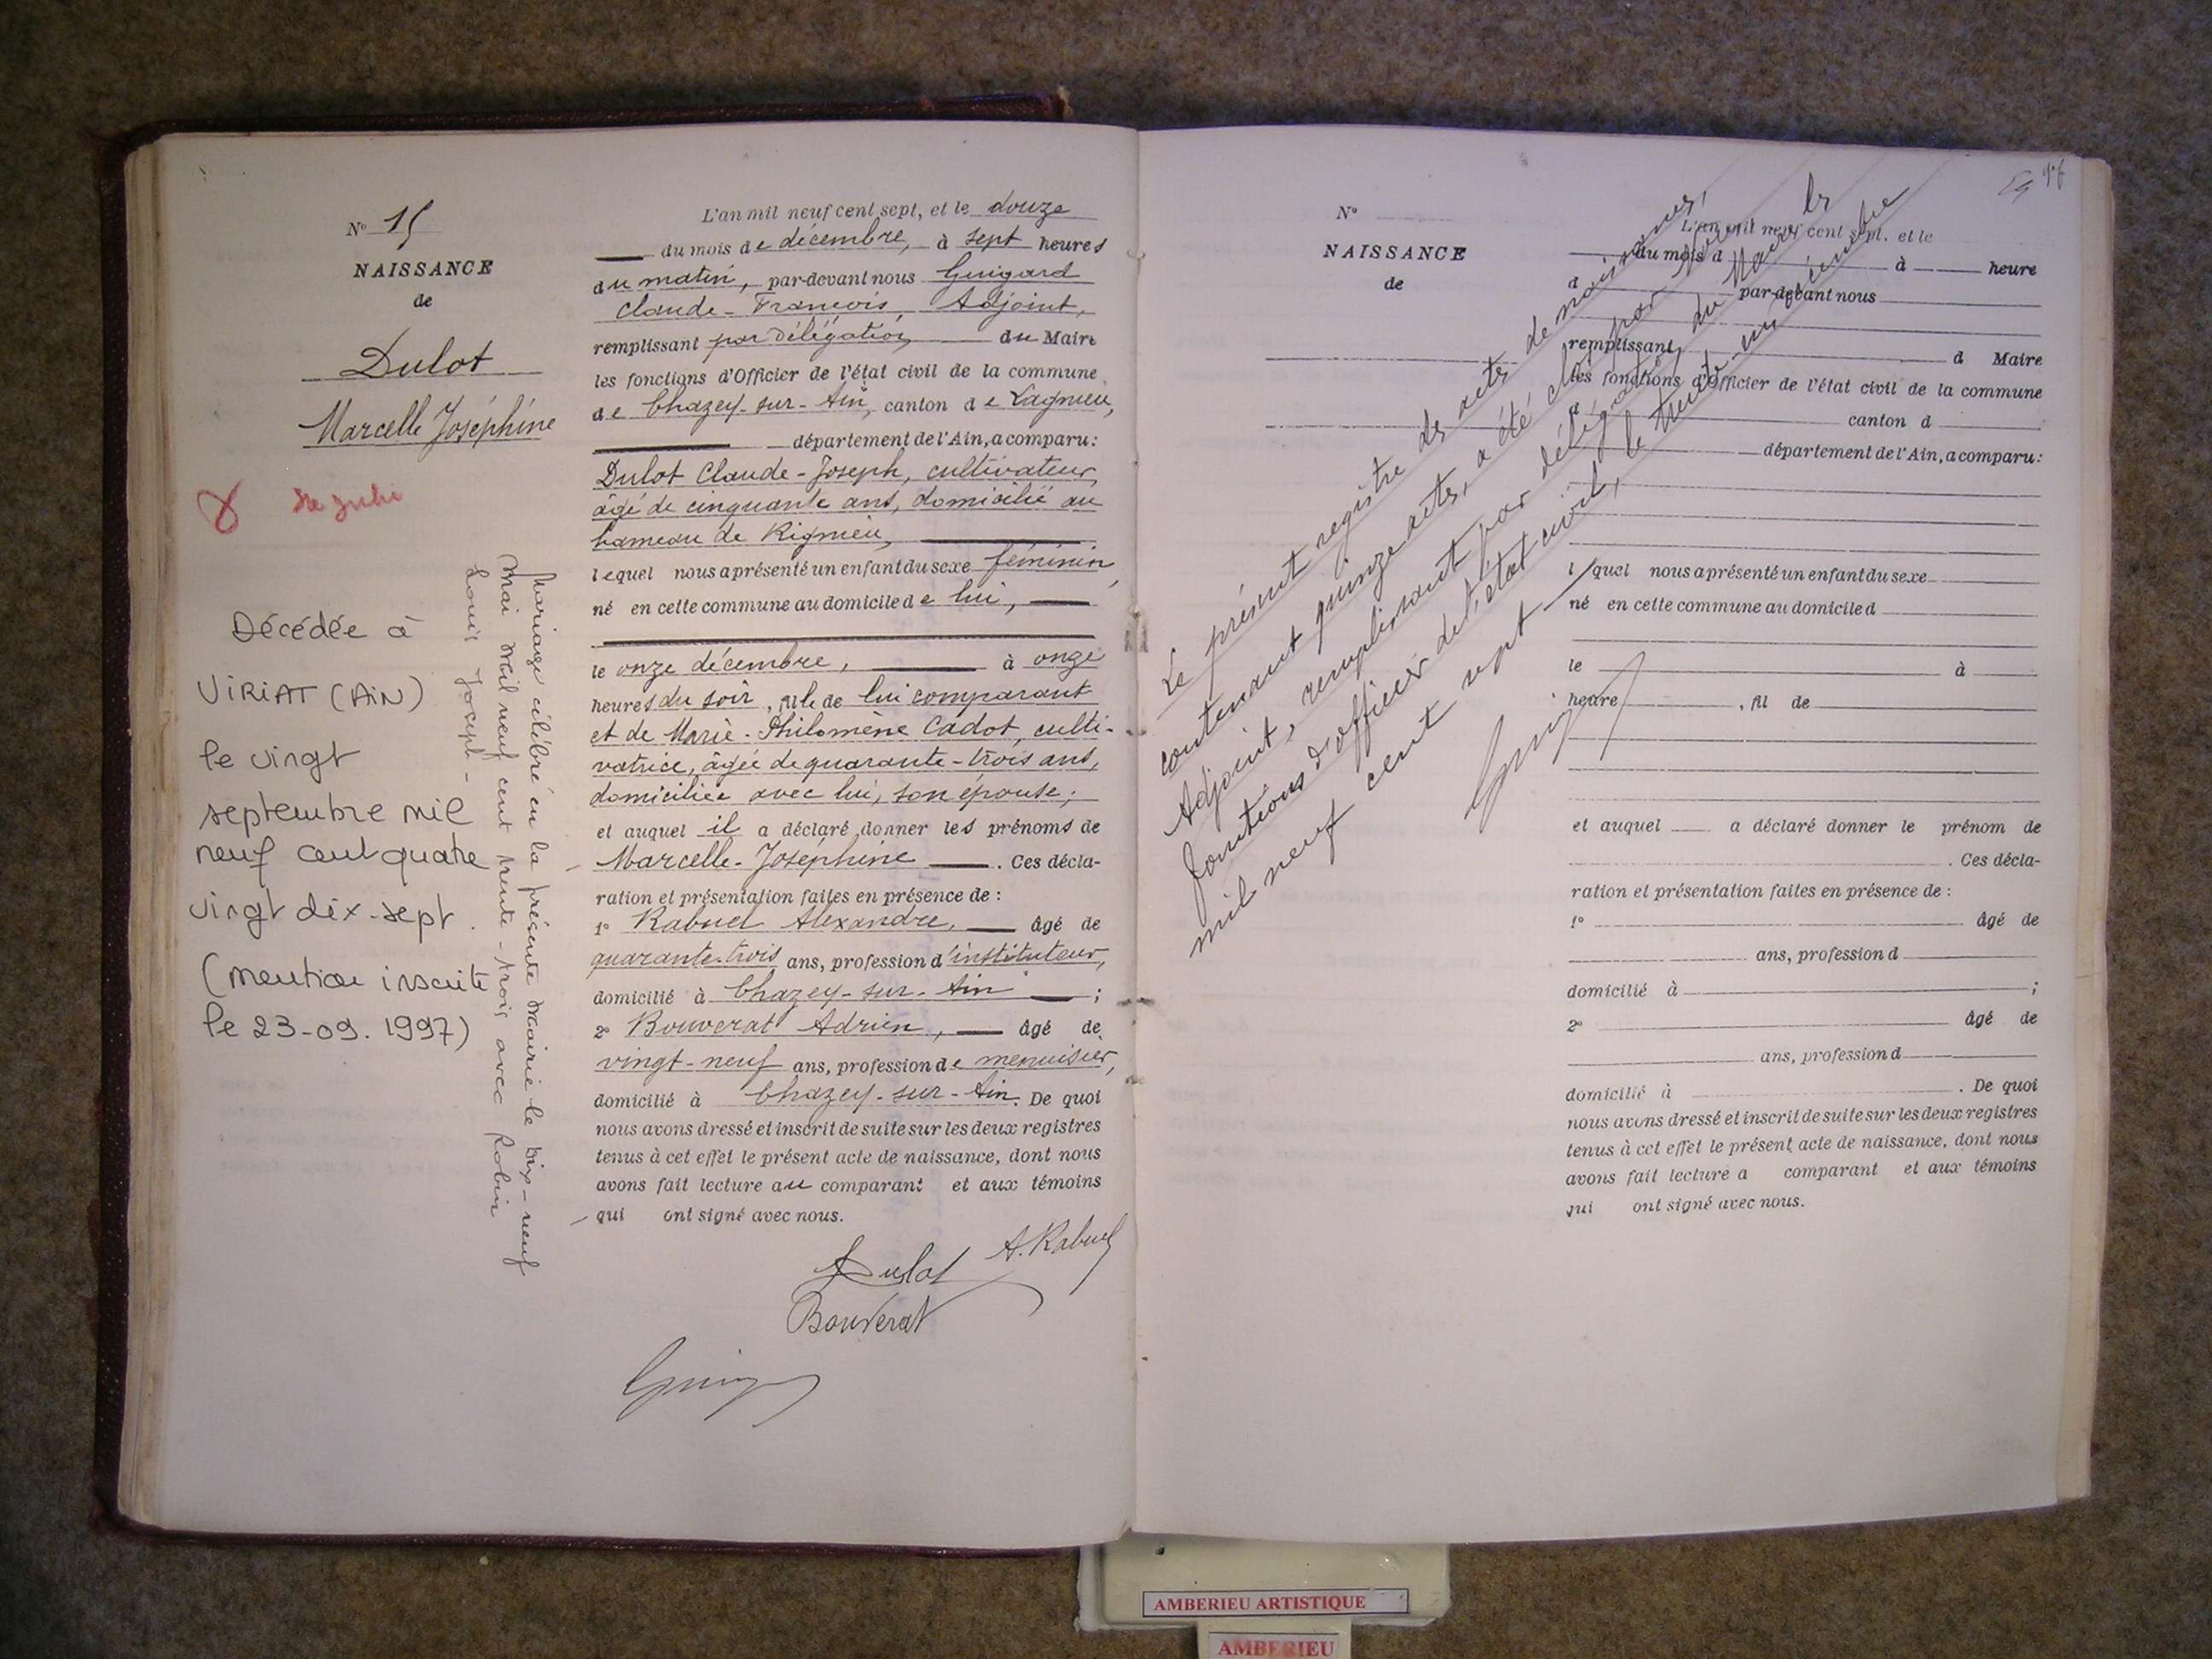 N° 15
NAISSANCE
de
Dulot
Marcelle Joséphine
Décédée à
VIRIAT (AIN)
le vingt
septembre mil
neuf cent quatre
vingt dix-sept.
(mention inscrite
le 23-09.1997)
Mariage célébré en la présente Mairie le dix-neuf
Mai mil neuf cent trente-trois avec Robin
Louis Joseph-
L'an mil neuf cent sept, et le douze
du mois de décembre, à sept heures
du matin, par-devant nous Guigard
Claude-François, Adjoint,
remplissant par délégation du Maire
les fonctions d'Officier de l'état civil de la commune
de Chazey-sur-Ain, canton de Lagnieu,
département de l'Ain, a comparu:
Dulot Claude-Joseph, cultivateur,
âgé de cinquante ans, domicilié au
hameau de Rignieu,
lequel nous a présenté un enfant du sexe féminin,
né en cette commune au domicile de lui,
le onze décembre, à onze
heures du soir, fille de lui comparant
et de Marie-Philomène Cadot, culti-
vatrice, âgée de quarante-trois ans,
domiciliée avec lui, son épouse;
et auquel il a déclaré donner les prénoms de
Marcelle-Joséphine. Ces décla-
ration et présentation faites en présence de :
1° Rabuel Alexandre, âgé de
quarante-trois ans, profession d'instituteur,
domicilié à Chazey-sur-Ain ;
2° Bouverat Adrien, âgé de
vingt-neuf ans, profession de menuisier,
domicilié à Chazey-sur-Ain. De quoi
nous avons dressé et inscrit de suite sur les deux registres
tenus à cet effet le présent acte de naissance, dont nous
avons fait lecture au comparant et aux témoins
qui ont signé avec nous.
Dulot A. Rabuel
Bouverat
N°
NAISSANCE
de
L'an mil neuf cent sept, et le
du mois d à heure
d par-devant nous
remplissant d Maire
les fonctions d'Officier de l'état civil de la commune
d canton d
département de l'Ain, a comparu:
l quel nous a présenté un enfant du sexe
né en cette commune au domicile d
le à
heure , fil de
et auquel a déclaré donner le prénom de
. Ces décla-
ration et présentation faites en présence de :
1° âgé de
ans, profession d
domicilié à ;
2° âgé de
ans, profession d
domicilié à . De quoi
nous avons dressé et inscrit de suite sur les deux registres
tenus à cet effet le présent acte de naissance, dont nous
avons fait lecture a comparant et aux témoins
qui ont signé avec nous.
Le présent registre des actes de naissances,
contenant quinze actes, a été clos par
Adjoint, remplissant par délégation du Maire les
fonctions d'officier de l'état civil, le trente-un décembre
mil neuf cent sept
AMBERIEU ARTISTIQUE
AMBERIEU